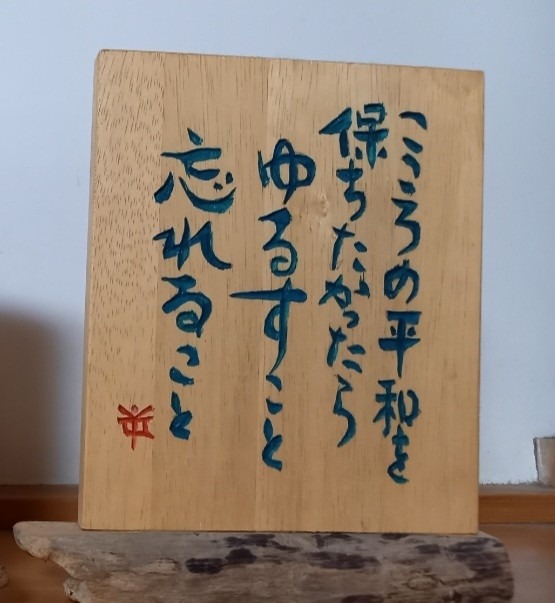 こころの平和を
保ちたかったら
ゆるすこと
忘れること